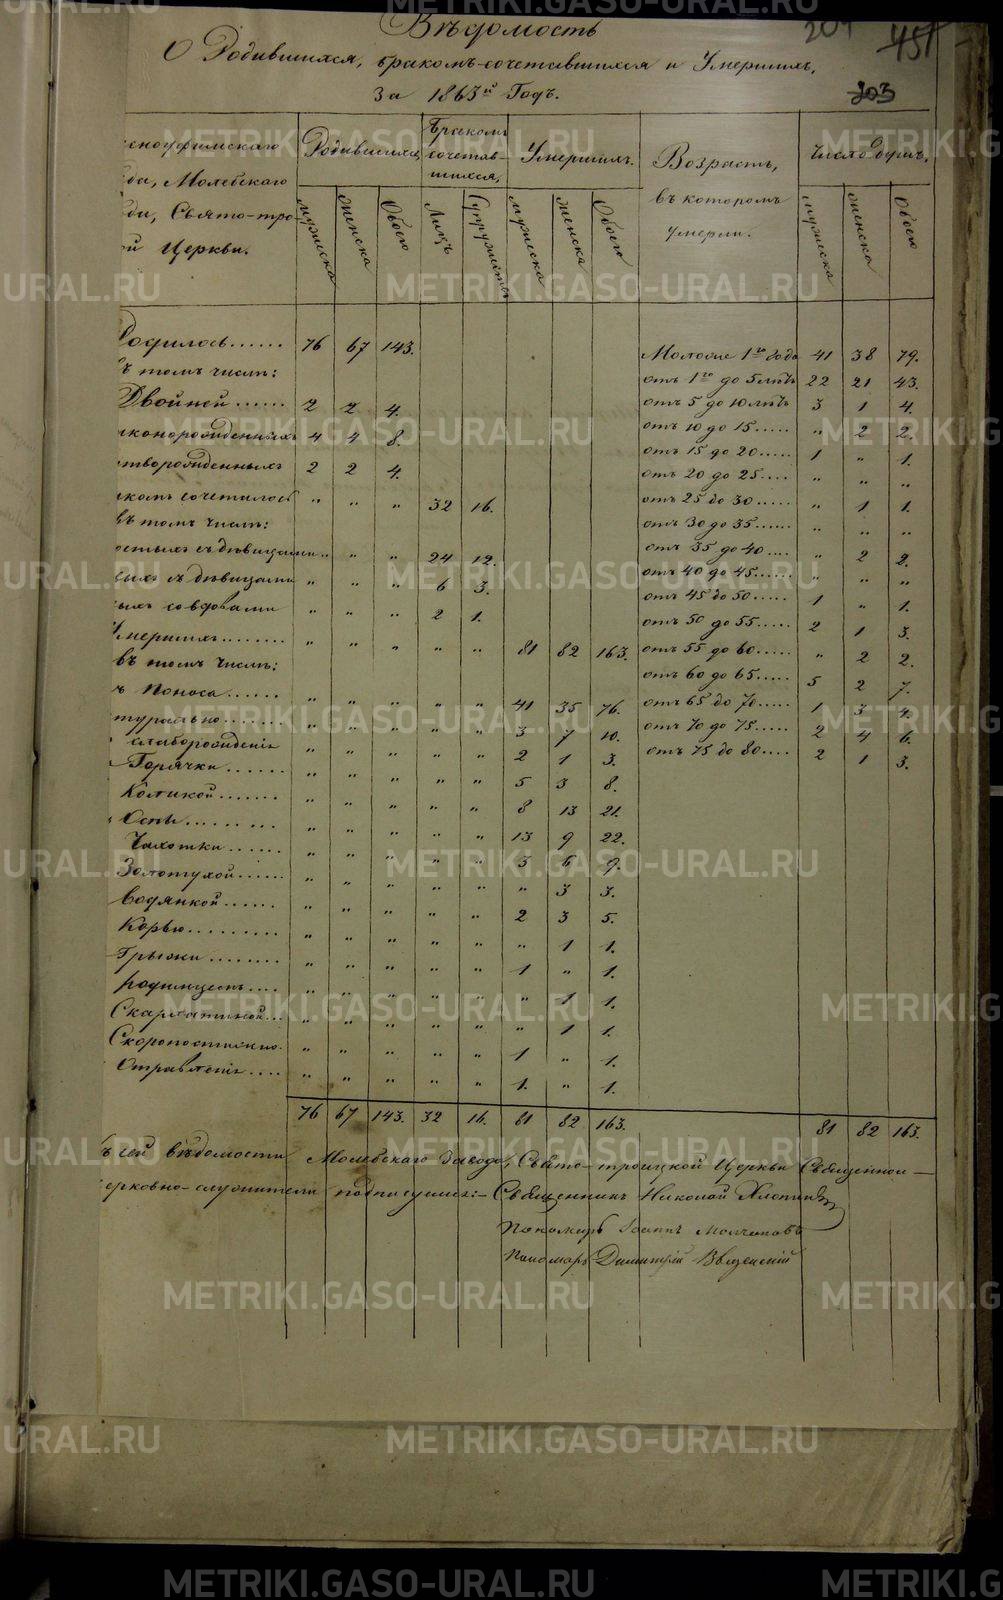 Вѣдомость
О Родившихся, бракомъ-сочетавшихся и Умершихъ,
За 1863й Годъ.
201 451
203
сноуфимскаго Родившихся, Бракомъ сочетав-шихся, Умершихъ. Возрастъ, въ которомъ умерли. Число душъ,
да, Молебскаго
ди, Свято-тро-
ой Церкви.
мужеска женска Обоего Лицъ Супружествъ мужеска женска Обоего мужеска женска Обоего
Родилось...... 76 67 143. Моложе 1го года 41 38 79.
въ томъ числѣ: отъ 1го до 5 лѣтъ 22 21 43.
Двойней...... 2 2 4. отъ 5 до 10 лѣтъ 3 1 4.
аконорожденныхъ 4 4 8. отъ 10 до 15..... " 2 2.
ртворожденныхъ 2 2 4. отъ 15 до 20..... 1 " 1.
отъ 20 до 25.... " " "
акомъ сочеталось " " " 32 16. отъ 25 до 30..... " 1 1.
въ томъ числѣ: отъ 30 до 35...... " " "
остыхъ съ дѣвицами.. " " 24 12. отъ 35 до 40.... " 2 2.
выхъ съ дѣвицами " " " 6 3. отъ 40 до 45...... " " "
ыхъ со вдовами " " " 2 1. отъ 45 до 50..... 1 " 1.
Умершихъ........ " " " " " 81 82 163. отъ 50 до 55..... 2 1 3.
въ томъ числѣ: отъ 55 до 60...... " 2 2.
ъ Поноса...... " " " " " 41 35 76. отъ 60 до 65..... 5 2 7.
турально........ " " " " " 3 7 10. отъ 65 до 70..... 1 3 4.
слаборожденія " " " " " 2 1 3. отъ 70 до 75..... 2 4 6.
Горячки....... " " " " " 5 3 8. отъ 75 до 80.... 2 1 3.
Коликой....... " " " " " 8 13 21.
Оспы......... " " " " " 13 9 22.
Чахотки...... " " " " " 3 6 9.
Золотухой...... " " " " " " 3 3.
водянкой...... " " " " " 2 3 5.
Корью......... " " " " " " 1 1.
Грыжи........ " " " " " 1 " 1.
родимцемъ.... " " " " " " 1 1.
Скарлатиной... " " " " " " 1 1.
Скоропостижно. " " " " " 1 " 1.
Отравленія.... " " " " " 1. " 1.
76 67 143. 32 16. 81 82 163. 81 82 163.
ъ сей вѣдомости Молебскаго завода, Свято-троицкой Церкви Священно-
ерковно-служители подписуемся:- Священникъ Николай
Пономарь Іоаннъ Молчановъ
Пономарь Димитрій Введенскій
METRIKI.GASO-URAL.RU